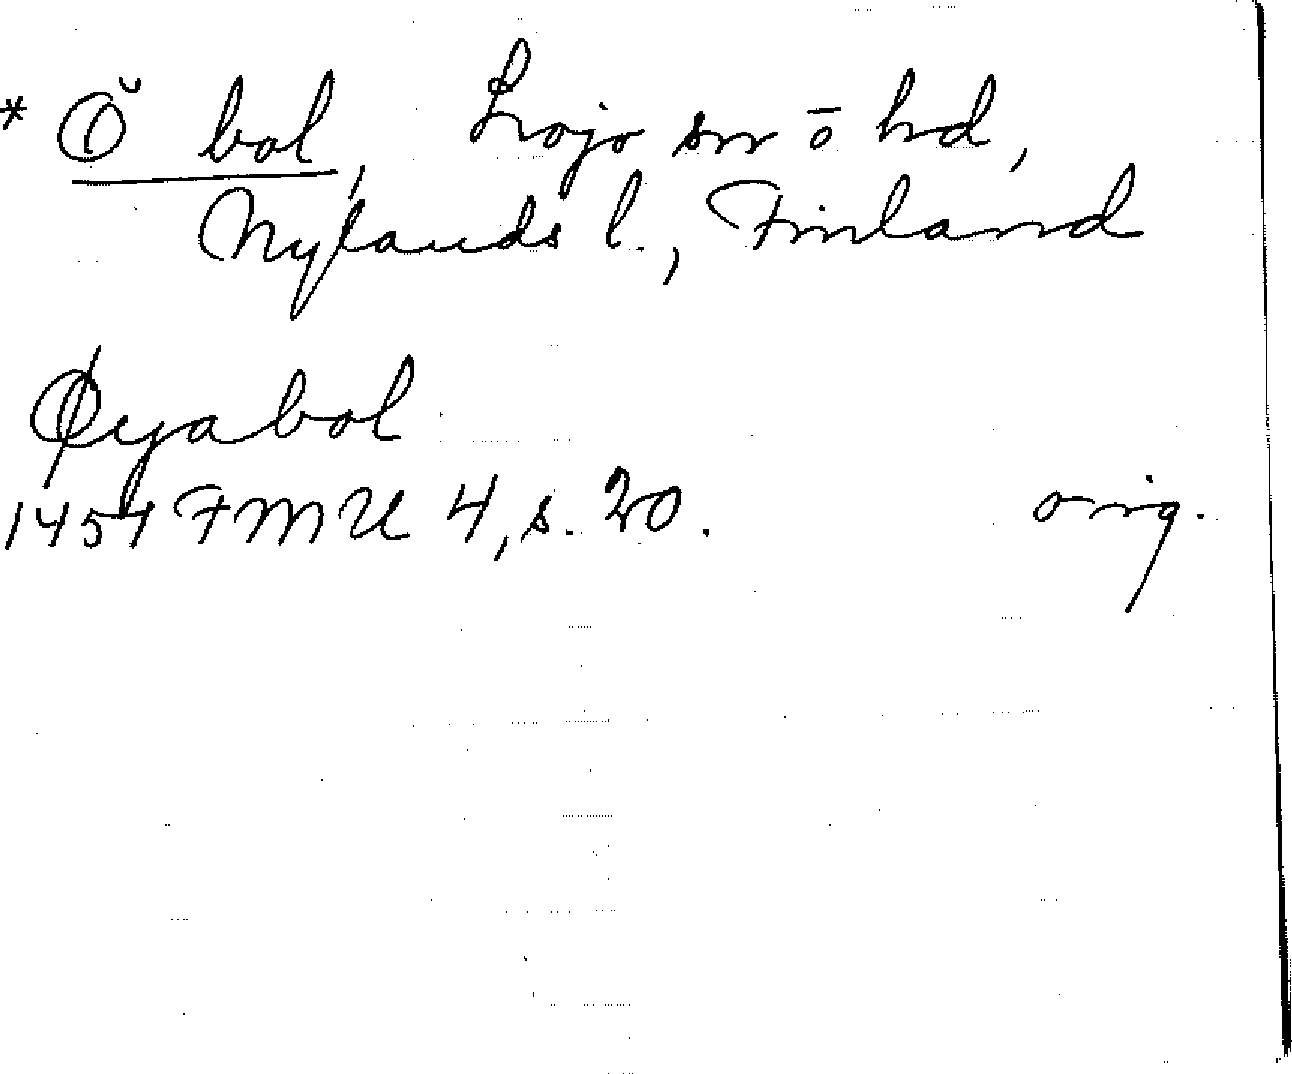 * Ö bol, Lojo sn o hd,
Nylands l., Finland
Øyabol
1454 FMU 4, s. 20. orig.